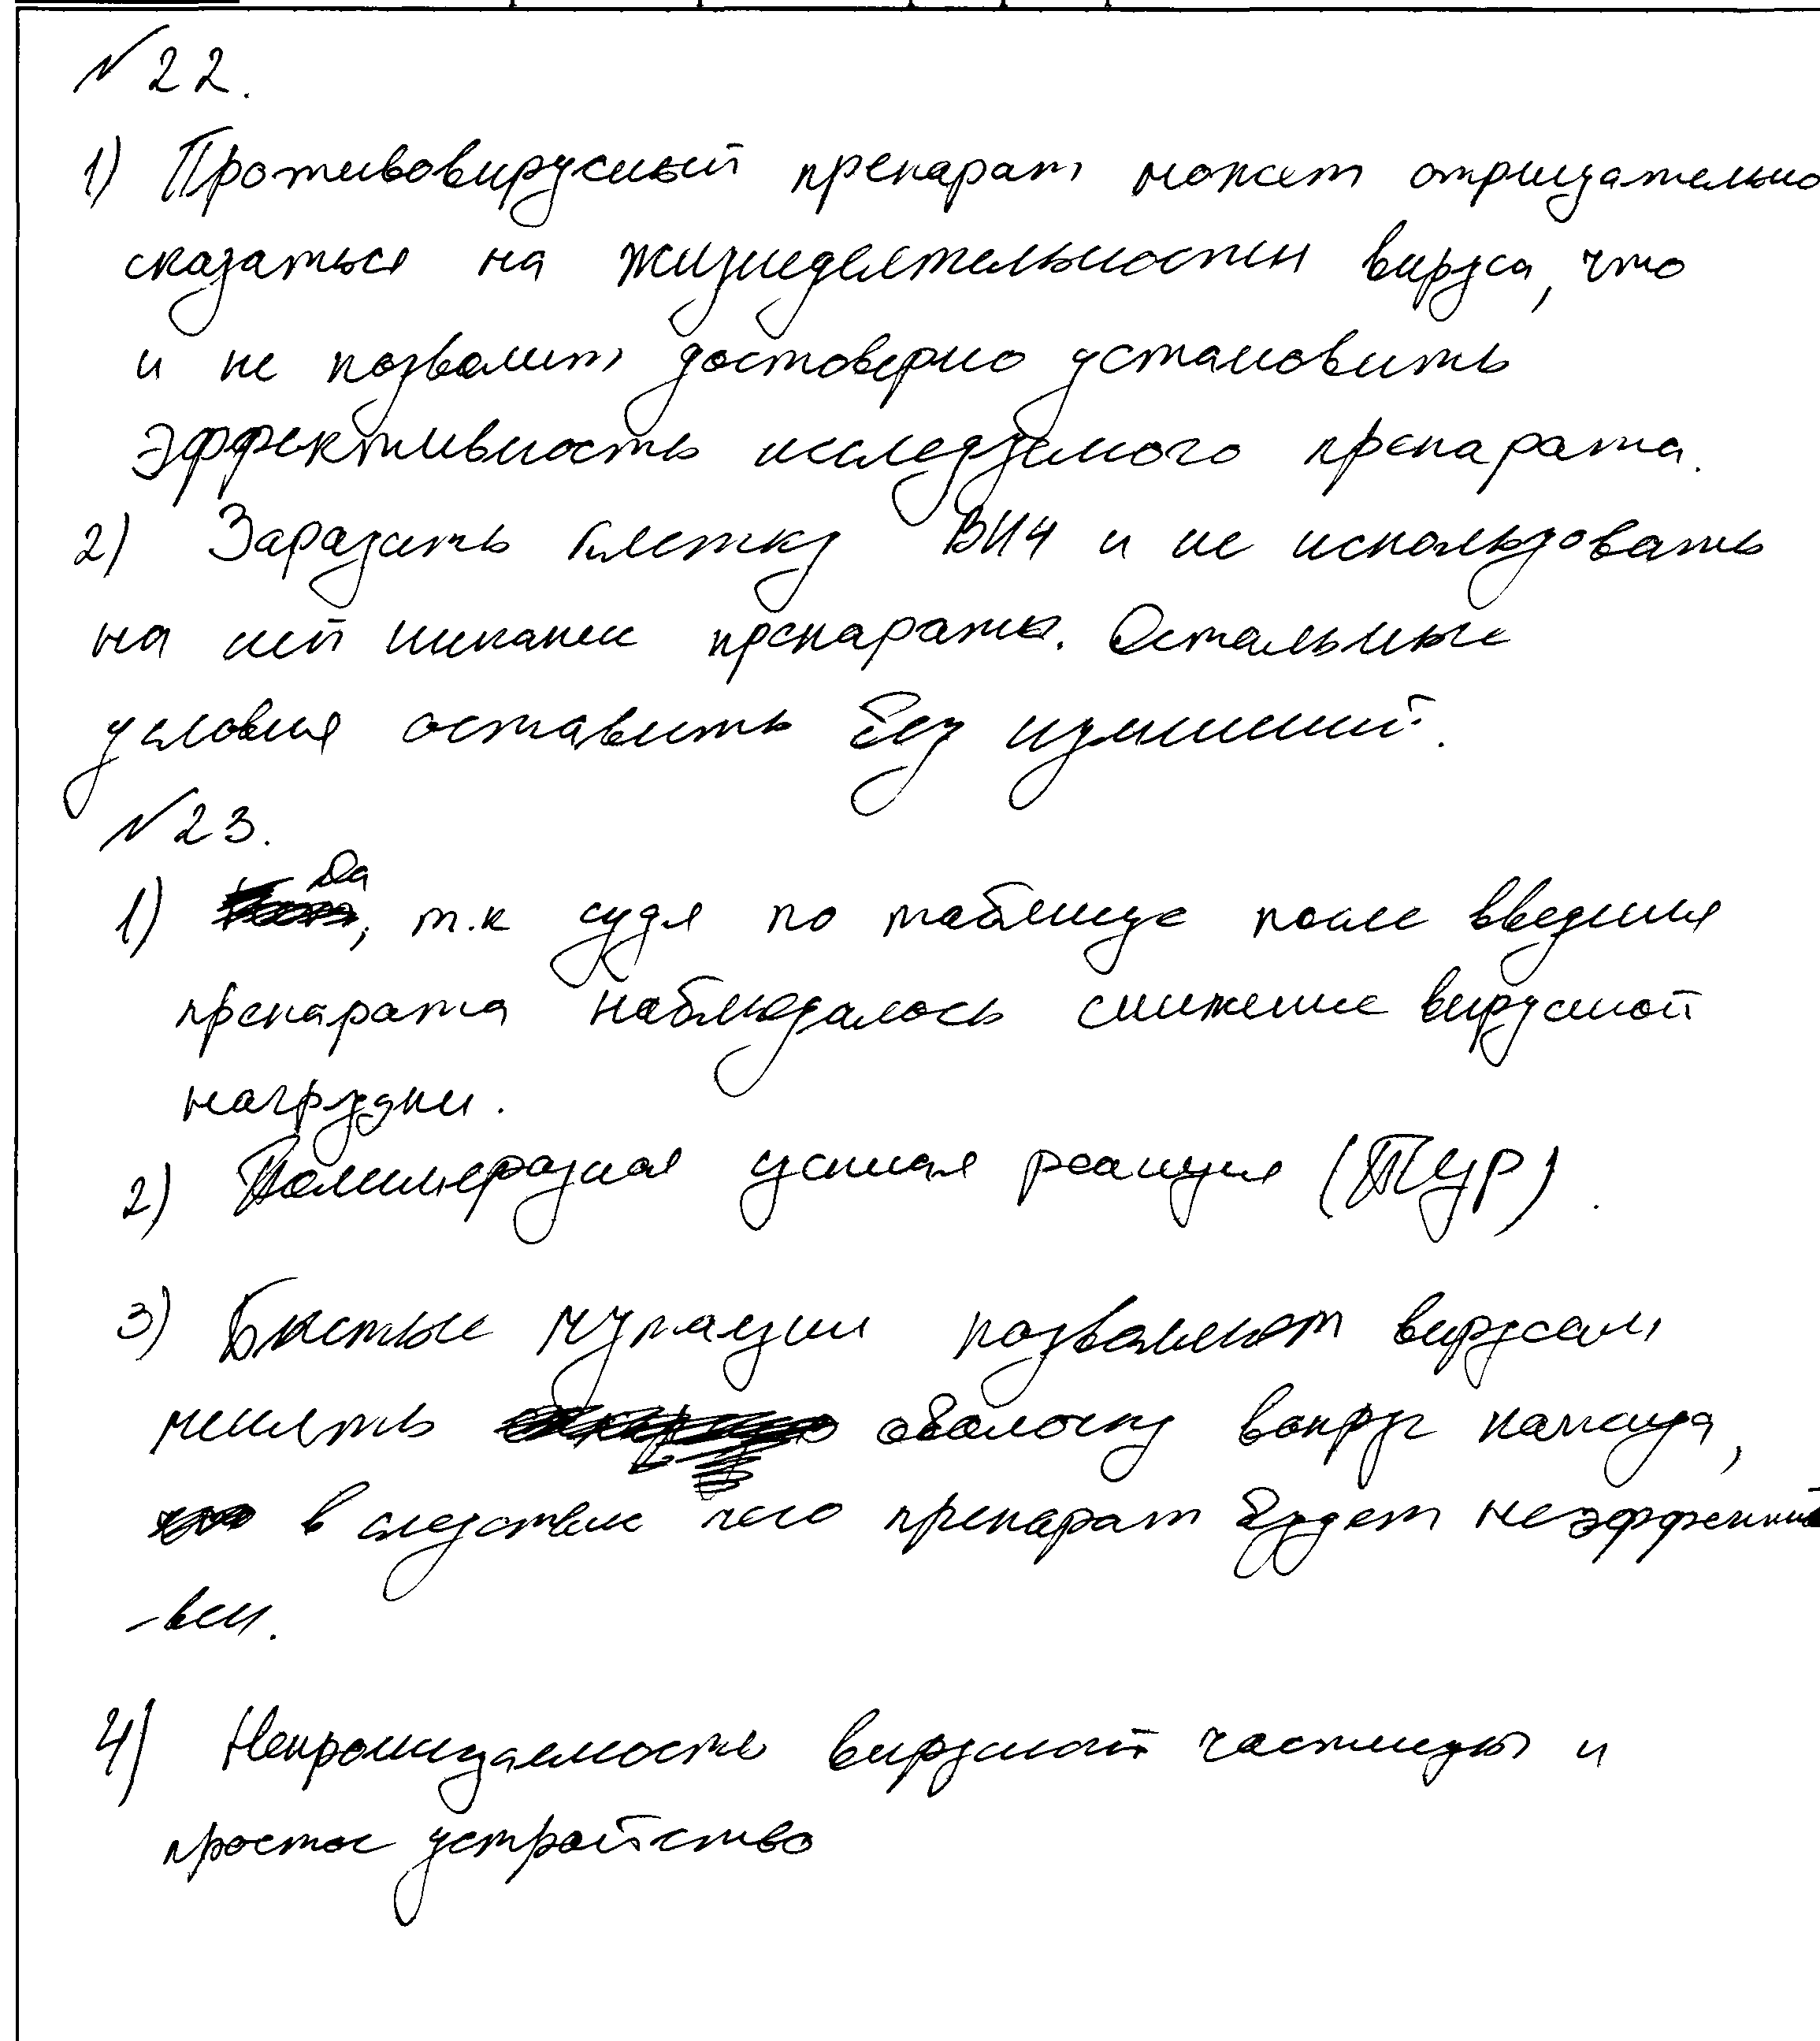 №22.
1) Противовирусный препарат может отрицательно
сказаться на жизнедеятельности вируса, что
и не позволит достоверно установить
эффективность исследуемого препарата.
2) Заразить клетку ВИЧ и не использовать
на ней никакие препараты. Остальные
условия оставить без изменений.
№23.
1) Да, т.к судя по таблице после введения
препарата наблюдалось снижение вирусной
нагрузки.
2) Полимеразная цепная реакция (ПЦР).
3) Быстрые мутации позволяют вирусам
менять оболочку вокруг капсида,
в следствие чего препарат будет неэффекти
-вен.
4) Непроницаемость вирусной частицы и
простое устройство